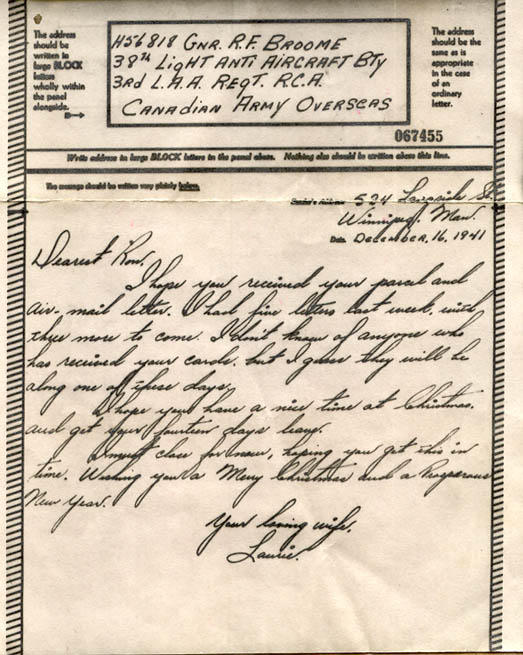 The address
should be
written in
large BLOCK
letters
wholly within
the panel
alongside.
H56818 GNR. R.F. BROOME
38TH LIGHT ANTI AIRCRAFT BTY
3RD L.A.A. REGT. R.C.A.
CANADIAN ARMY OVERSEAS
The address
should be the
same as is
appropriate
in the case
of an
ordinary
letter.
067455
Write address in large BLOCK letters in the panel above. Nothing else should be written above this line.
The message should be written very plainly below.
Sender's Address 524 Langside St.
Winnipeg, Man.
Date December, 16, 1941
Dearest Ron.
I hope you received your parcel and
air-mail letter. I had five letters last week, with
three more to come. I don't know of anyone who
has received your cards, but I guess they will be
along one of these days.
I hope you have a nice time at Christmas,
and get your fourteen days leave.
I must close for now, hoping you get this in
time. Wishing you a Merry Christmas and a Prosperous
New Year.
Your loving wife.
Laurie.